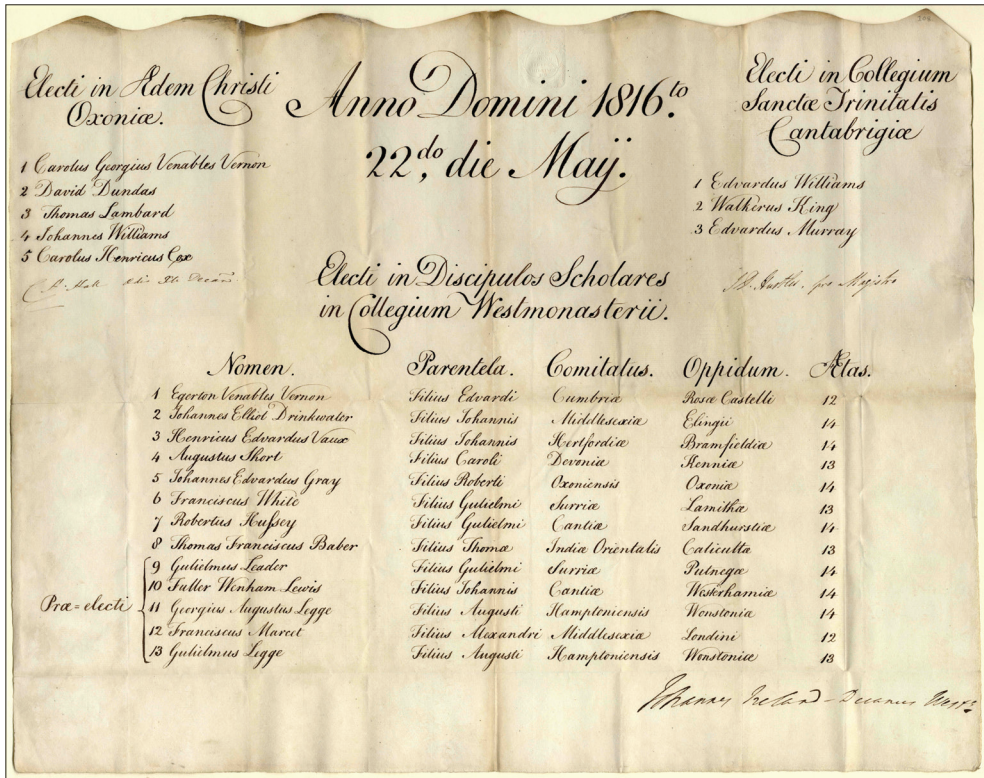 Electi in Ædem Christi
Oxoniæ.
1 Carolus Georgius Venables Vernon
2 David Dundas
3 Thomas Lambard
4 Johannes Williams
5 Carolus Henricus Cox
C. H. Hall
Anno Domini 1816.to
22,do die Maij.
Electi in Collegium
Sanctæ Trinitatis
Cantabrigiæ
1 Edvardus Williams
2 Walkerus King
3 Edvardus Murray
pro Magistro
Electi in Discipulos Scholares
in Collegium Westmonasterii.
Nomen. Parentela. Comitatus. Oppidum. Ætas.
1 Egerton Venables Vernon Filius Edvardi Cumbriæ Rosæ Castelli 12
2 Johannes Elliot Drinkwater Filius Johannis Middlesexiæ Elingii 14
3 Henricus Edvardus Vaux Filius Johannis Hertfordiæ Bramfieldiæ 14
4 Augustus Short Filius Caroli Devoniæ Kenniæ 13
5 Johannes Edvardus Gray Filius Roberti Oxoniensis Oxoniæ 14
6 Franciscus White Filius Gulielmi Surriæ Lamithæ 13
7 Robertus Hussey Filius Gulielmi Cantiæ Sandhurstiæ 14
8 Thomas Franciscus Baber Filius Thomæ Indiæ Orientalis Calicuttæ 13
9 Gulielmus Leader Filius Gulielmi Surriæ Putnegæ 14
10 Fuller Wenham Lewis Filius Johannis Cantiæ Westerhamiæ 14
Præ=electi 11 Georgius Augustus Legge Filius Augusti Hamptoniensis Wonstoniæ 14
12 Franciscus Marcet Filius Alexandri Middlesexiæ Londini 12
13 Gulielmus Legge Filius Augusti Hamptoniensis Wonstoniæ 13
Johannes Ireland - Decanus Westr